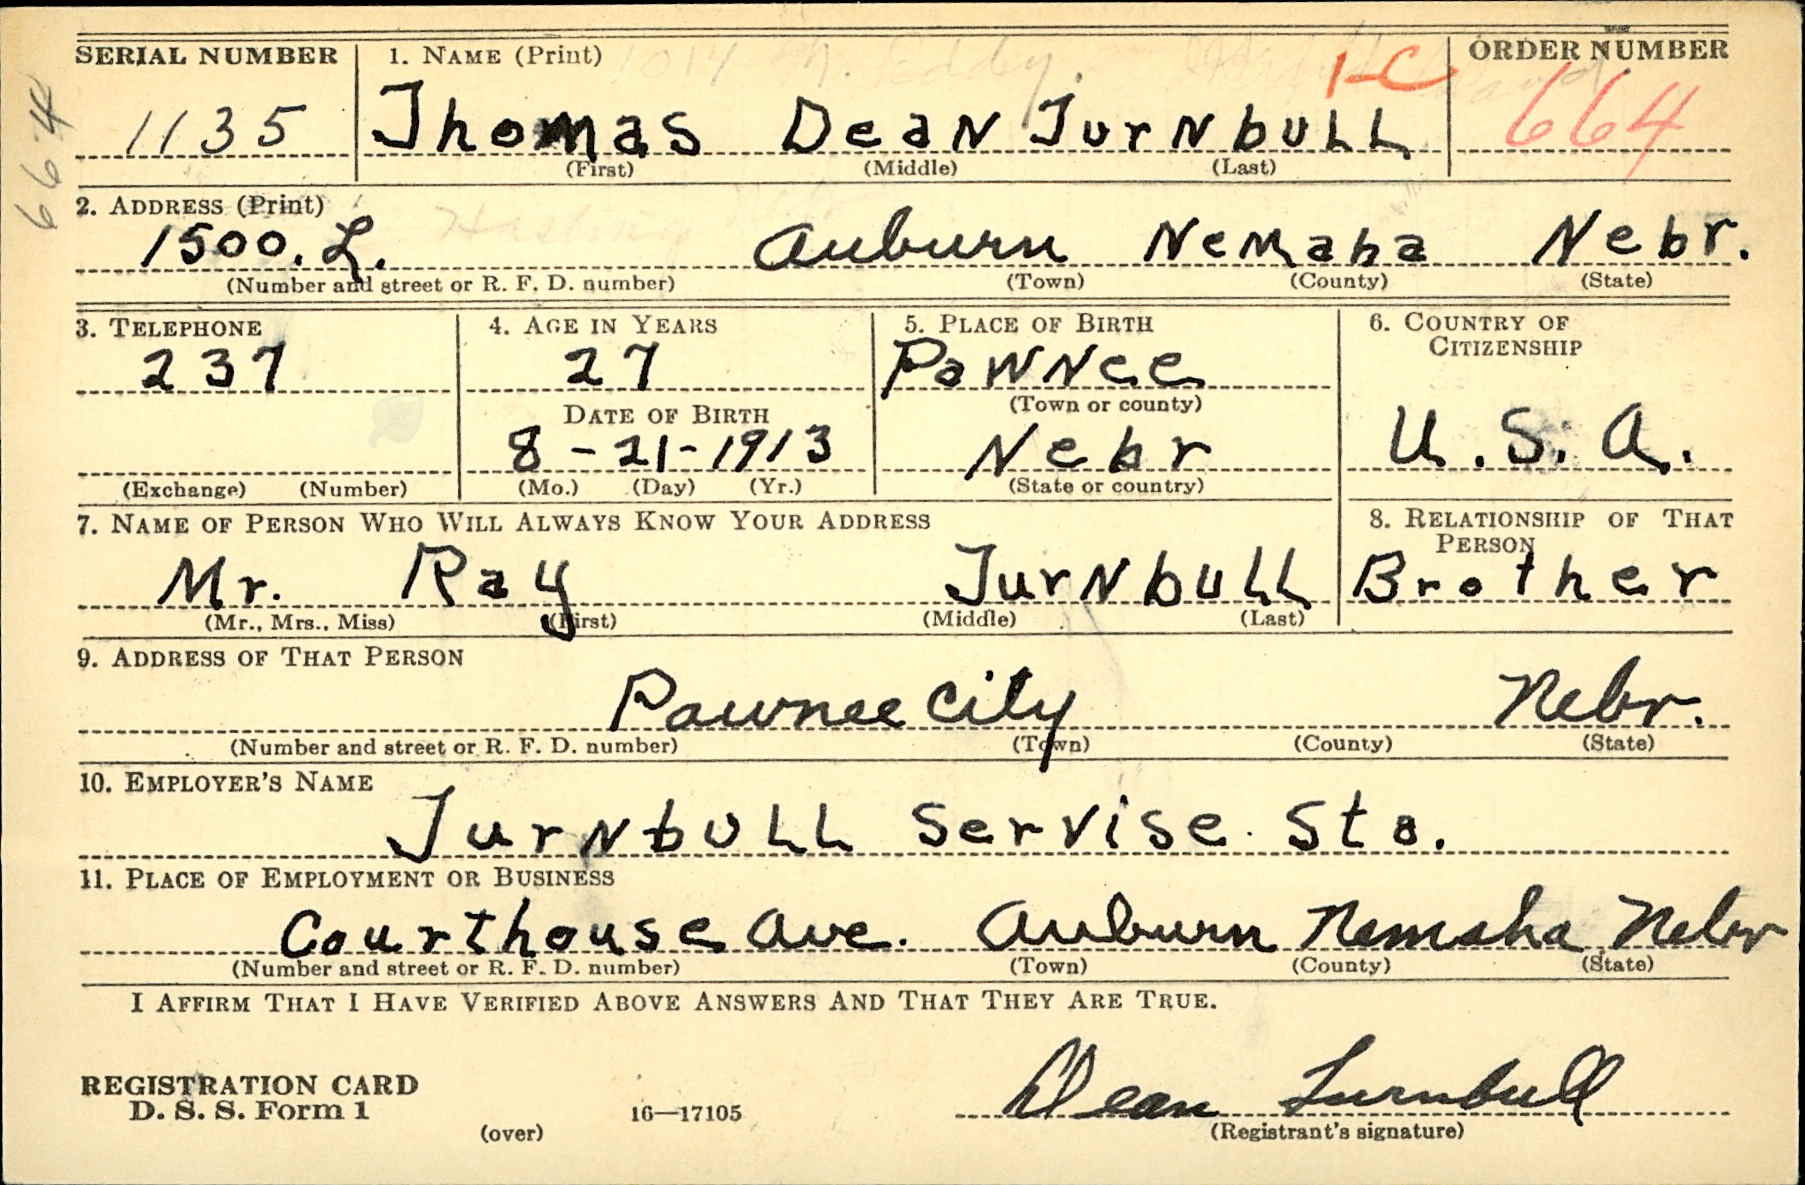 SERIAL NUMBER 1. NAME (Print) ORDER NUMBER
1-C
664
1135 Thomas Dean Turnbull 664
(First) (Middle) (Last)
2. ADDRESS (Print)
1500. L. Auburn Nemaha Nebr.
(Number and street or R. F. D. number) (Town) (County) (State)
3. TELEPHONE 4. AGE IN YEARS 5. PLACE OF BIRTH 6. COUNTRY OF
CITIZENSHIP
237 27 Pawnee
(Town or county)
DATE OF BIRTH
8-21-1913 Nebr U.S.A.
(Exchange) (Number) (Mo.) (Day) (Yr.) (State or country)
7. NAME OF PERSON WHO WILL ALWAYS KNOW YOUR ADDRESS 8. RELATIONSHIP OF THAT
PERSON
Mr. Ray Turnbull Brother
(Mr., Mrs., Miss) (First) (Middle) (Last)
9. ADDRESS OF THAT PERSON
Pawnee City Nebr.
(Number and street or R. F. D. number) (Town) (County) (State)
10. EMPLOYER'S NAME
Turnbull Servise Sta.
11. PLACE OF EMPLOYMENT OR BUSINESS
Courthouse Ave. Auburn Nemaha Nebr
(Number and street or R. F. D. number) (Town) (County) (State)
I AFFIRM THAT I HAVE VERIFIED ABOVE ANSWERS AND THAT THEY ARE TRUE.
REGISTRATION CARD
D. S. S. Form 1 16—17105 Dean Turnbull
(over) (Registrant's signature)